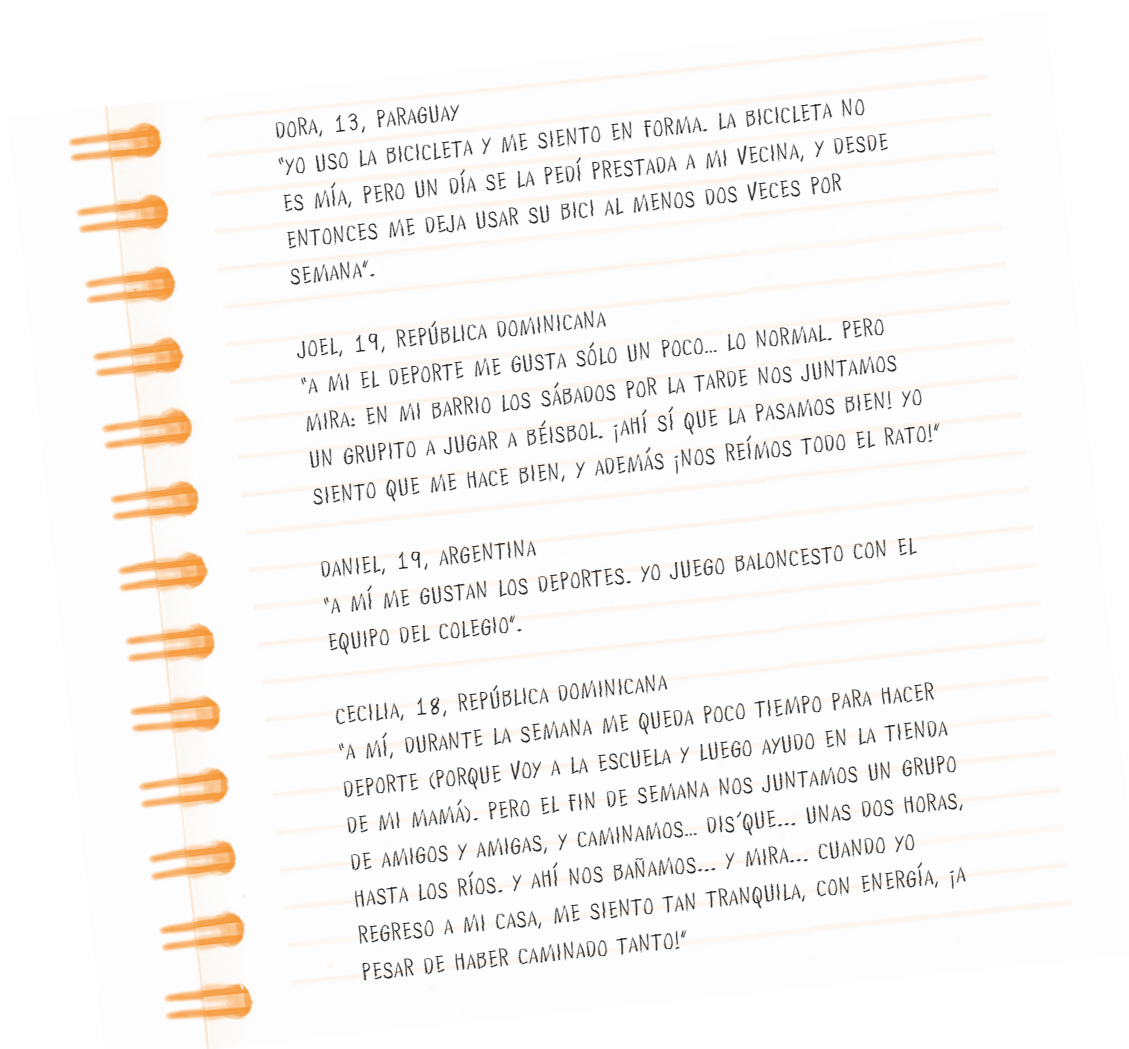 DORA, 13, PARAGUAY
"YO USO LA BICICLETA Y ME SIENTO EN FORMA. LA BICICLETA NO
ES MÍA, PERO UN DÍA SE LA PEDÍ PRESTADA A MI VECINA, Y DESDE
ENTONCES ME DEJA USAR SU BICI AL MENOS DOS VECES POR
SEMANA".
JOEL, 19, REPÚBLICA DOMINICANA
"A MI EL DEPORTE ME GUSTA SÓLO UN POCO... LO NORMAL. PERO
MIRA: EN MI BARRIO LOS SÁBADOS POR LA TARDE NOS JUNTAMOS
UN GRUPITO A JUGAR A BÉISBOL. ¡AHÍ SÍ QUE LA PASAMOS BIEN! YO
SIENTO QUE ME HACE BIEN, Y ADEMÁS ¡NOS REÍMOS TODO EL RATO!"
DANIEL, 19, ARGENTINA
"A MÍ ME GUSTAN LOS DEPORTES. YO JUEGO BALONCESTO CON EL
EQUIPO DEL COLEGIO".
CECILIA, 18, REPÚBLICA DOMINICANA
"A MÍ, DURANTE LA SEMANA ME QUEDA POCO TIEMPO PARA HACER
DEPORTE (PORQUE VOY A LA ESCUELA Y LUEGO AYUDO EN LA TIENDA
DE MI MAMÁ). PERO EL FIN DE SEMANA NOS JUNTAMOS UN GRUPO
DE AMIGOS Y AMIGAS, Y CAMINAMOS... DIS'QUE... UNAS DOS HORAS,
HASTA LOS RÍOS. Y AHÍ NOS BAÑAMOS... Y MIRA... CUANDO YO
REGRESO A MI CASA, ME SIENTO TAN TRANQUILA, CON ENERGÍA, ¡A
PESAR DE HABER CAMINADO TANTO!"